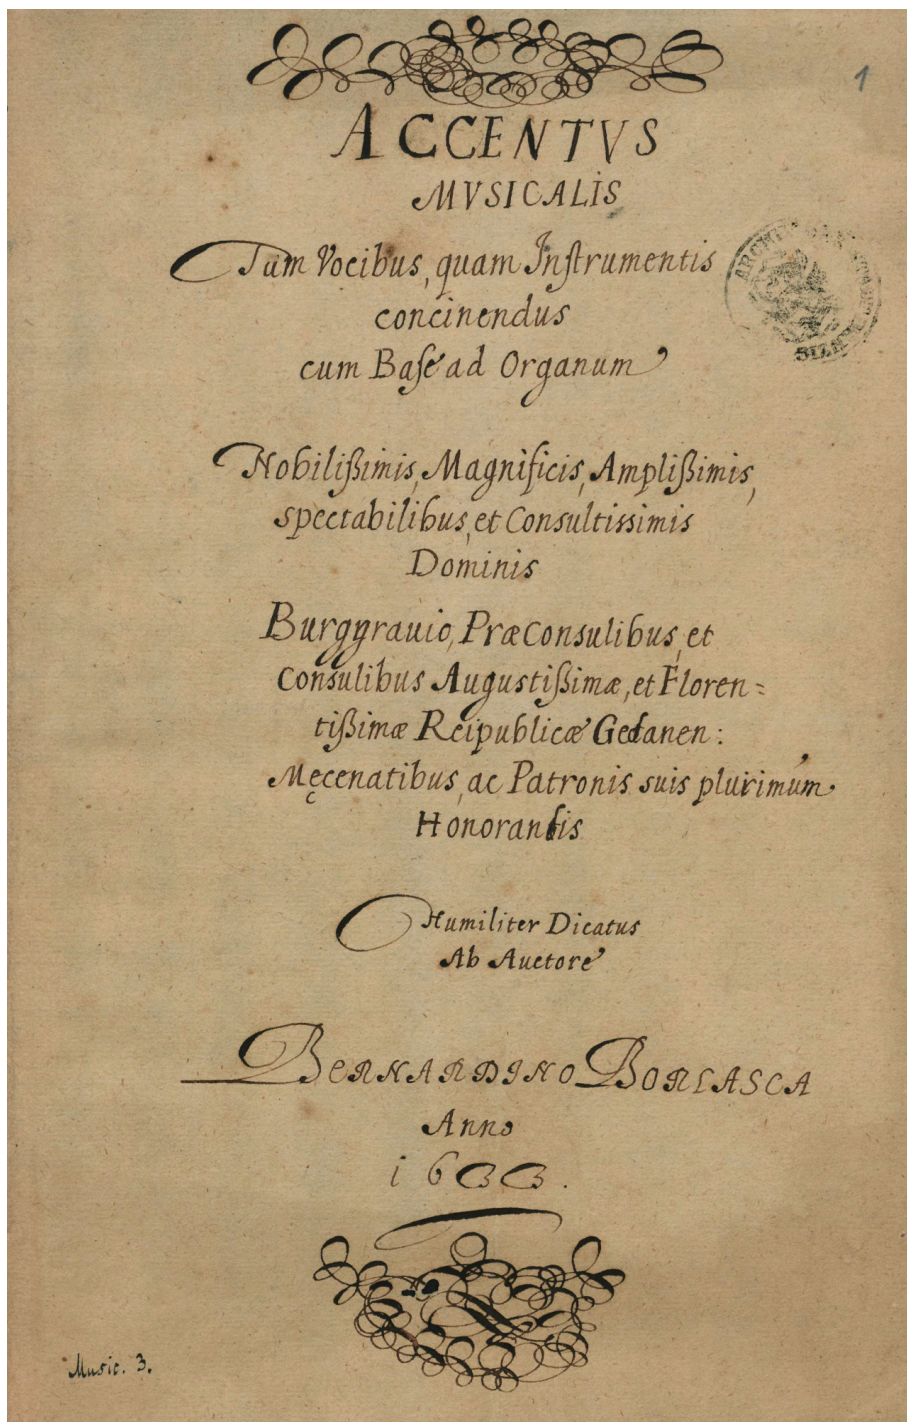 1
ACCENTVS
MVSICALIS
Tam Vocibus, quam Instrumentis
concinendus
cum Base ad Organum
Nobilißimis, Magnificis, Amplißimis,
spectabilibus, et Consultissimis
Dominis
Burggrauio, Præconsulibus, et
Consulibus Augustißimæ, et Floren=
tißimæ Reipublicæ Gedanen:
Męcenatibus, ac Patronis suis plurimum
Honorandis
Humiliter Dicatus
Ab Auctore
BERNARDINO BORLASCA
Anno
1633.
Music. 3.